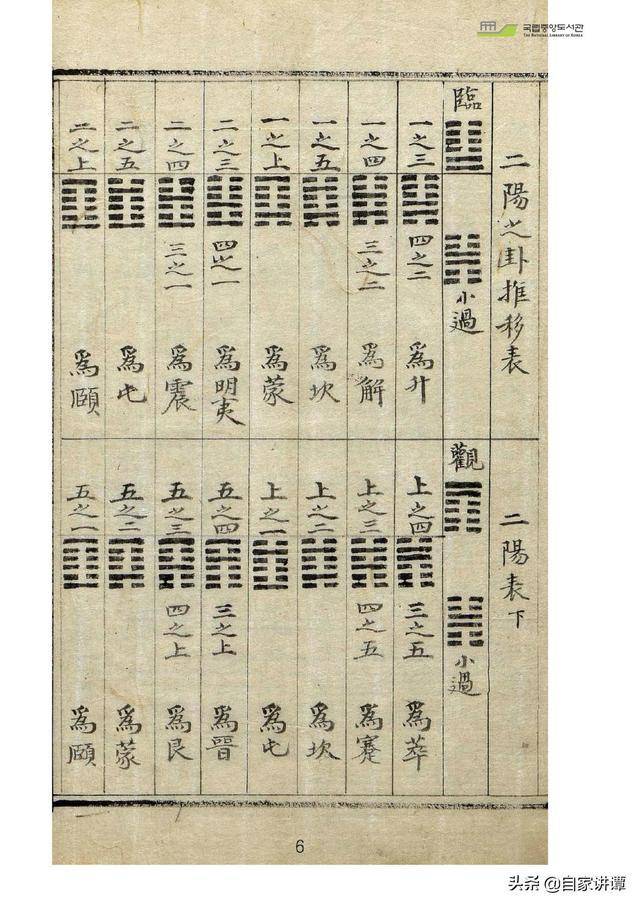 국립중앙도서관
THE NATIONAL LIBRARY OF KOREA
二陽之卦推移表
臨
小過
一之三
四之二
爲升
一之四
三之二
爲解
一之五
爲坎
一之上
爲蒙
二之三
四之一
爲明夷
二之四
三之一
爲震
二之五
爲屯
二之上
爲頤
二陽表下
觀
小過
上之四
三之五
爲萃
上之三
四之五
爲蹇
上之二
爲坎
上之一
爲屯
五之四
三之上
爲晉
五之三
四之上
爲艮
五之二
爲蒙
五之一
爲頤
6
头条 @自家讲谭